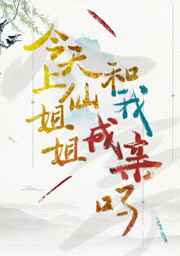 天上仙姐姐
和我成亲吗